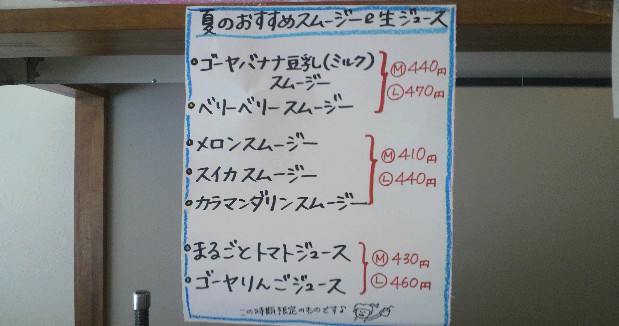 夏のおすすめスムージーe生ジュース
・ゴーヤバナナ豆乳(ミルク)
スムージー
Ⓜ440円
・ベリーベリースムージー
Ⓛ470円
・メロンスムージー
Ⓜ410円
・スイカスムージー
Ⓛ440円
・カラマンダリンスムージー
・まるごとトマトジュース
Ⓜ430円
・ゴーヤりんごジュース
Ⓛ460円
この時期限定のものですよ